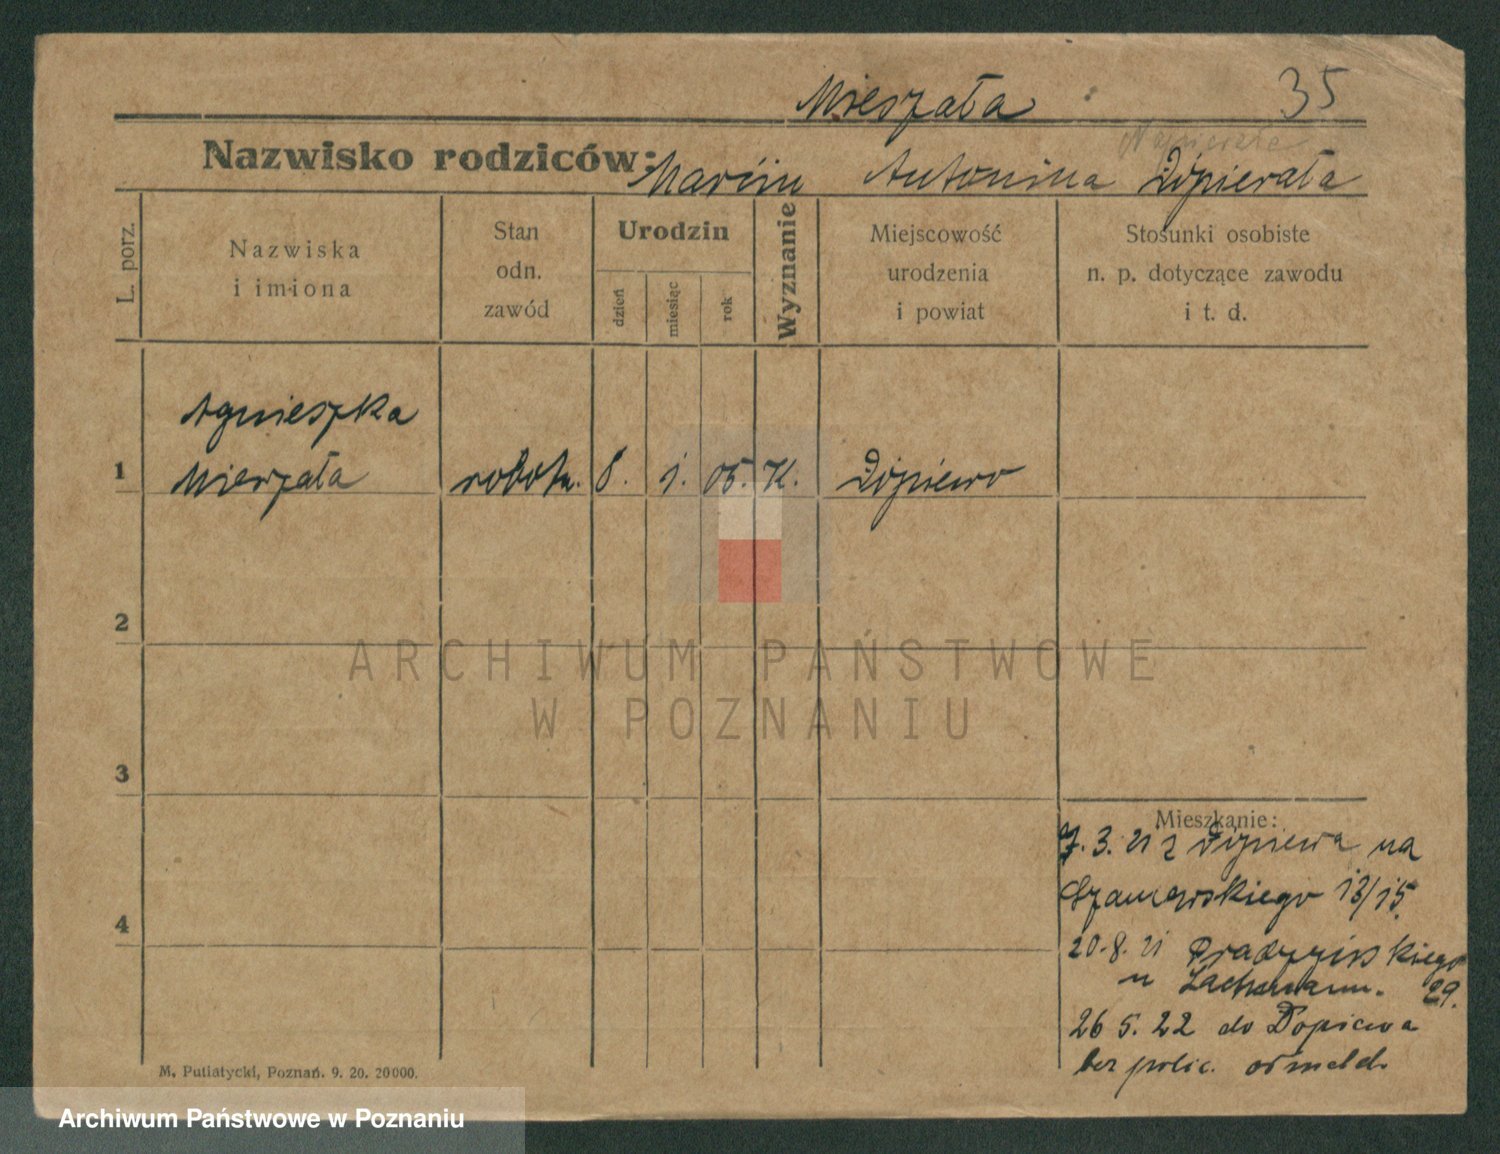 Mieszała 35
Nazwisko rodziców: Marcin Antonina Dopierała
L. porz.
Nazwiska
i imiona
Stan
odn.
zawód
Urodzin
dzień
miesiąc
rok
Wyznanie
Miejscowość
urodzenia
i powiat
Stosunki osobiste
n. p. dotyczące zawodu
i t. d.
Agnieszka
1 Mierzała robotn. 8. 1. 05. K. Dopiewo
2
ARCHIWUM PAŃSTWOWE
W POZNANIU
3
Mieszkanie:
7.3.21 z Dopiewa na
13/15.
4
20.8.21 Pradzyńskiego
u Lachmann. 29.
26 5. 22 do Dopiewa
bez polic. odmeld.
M. Putiatycki, Poznań. 9. 20. 20000.
Archiwum Państwowe w Poznaniu